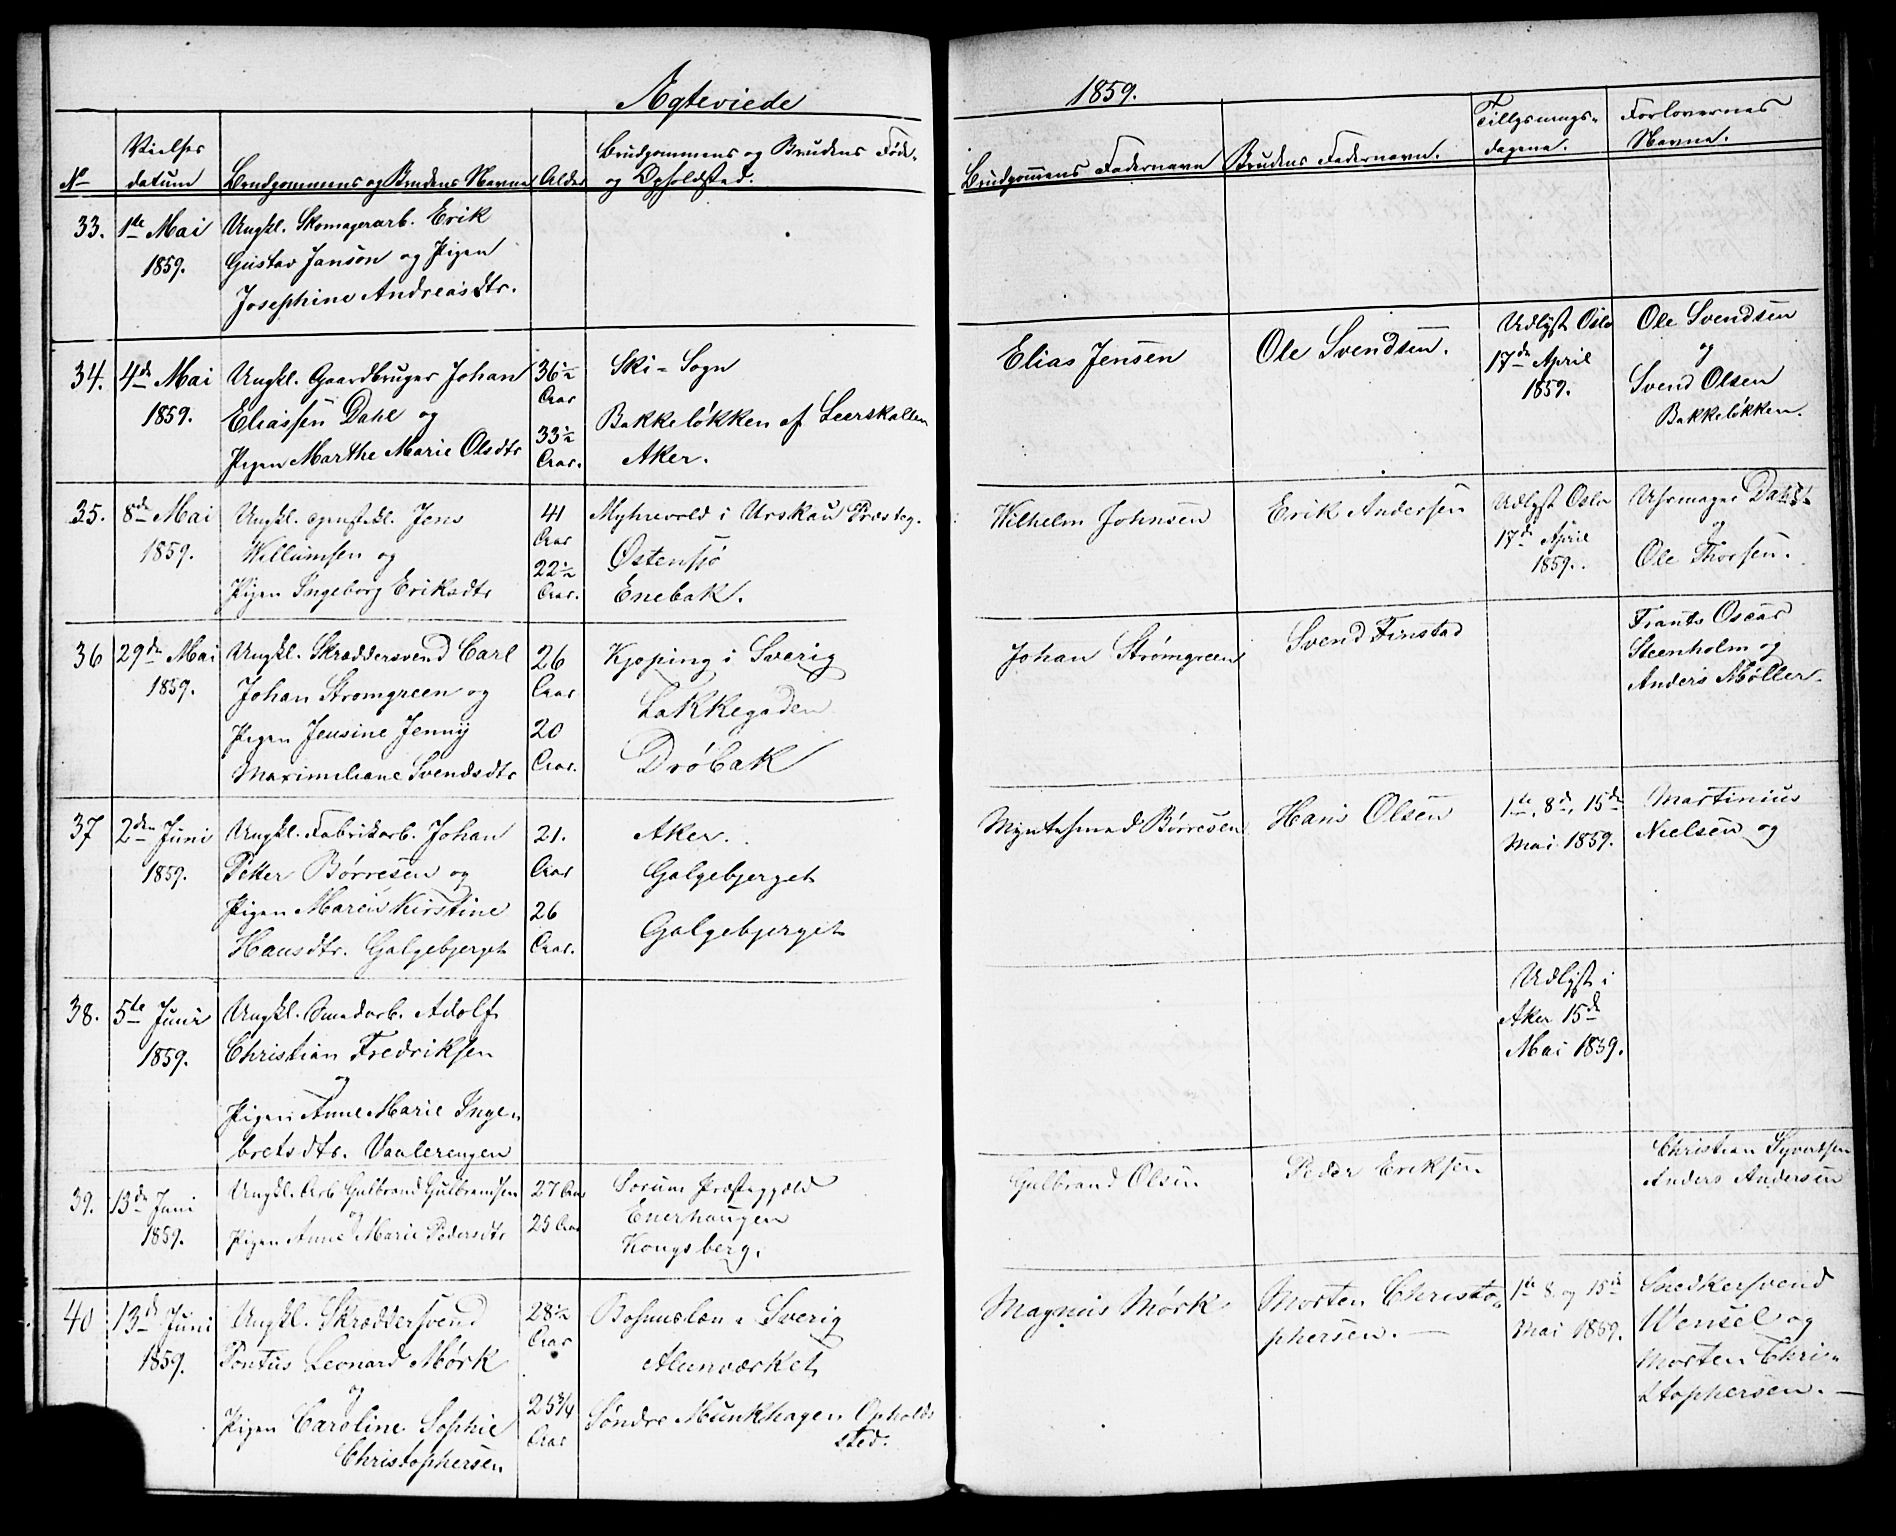 Ægteviede
1859.
No
Vielses
datum
Brudgommens og Brudens Navne
Alder
Brudgommens og Brudens Føde-
og Opholdsted.
Brudgommens Fadernavn
Brudens Fadernavn.
Tillysnings-
dagene.
Forlovernes
Navne.
33.
1ste Mai
1859.
Ungkl. Skomagerarb. Erik
Gustav Janson og Pigen
Josephine Andreasdtr.
34.
4de Mai
1859.
Ungkl. Gaardbruger Johan
Eliassen Dahl og
Pigen Marthe Marie Olsdtr
36½
Aar
33½
Aar.
Ski-Sogn
Bakkeløkken af Leerskallen
Aker.
Elias Jensen
Ole Svendsen.
Udlyst Oslo
17de April
1859.
Ole Svendsen
og
Svend Olsen
Bakkeløkken.
35.
8de Mai
1859.
Ungkl. Jens
Willumsen og
Pigen Ingeborg Eriksdtr
41
Aar
22½
Aar.
Myhrvold i Urskau Præsteg.
Østensjø
Enebak.
Wilhelm Johnsen
Erik Andersen
Udlyst Oslo
17de April
1859.
Uhrmager Dahl
og
Ole Thorsen.
36
29de Mai
1859.
Ungkl. Skræddersvend Carl
Johan Strømgreen og
Pigen Jensine Jenny
Maximiliane Svendsdtr
26
Aar
20
Aar.
Kjøping i Sverig
Lakkegaden
Drøbak
Johan Strømgreen
Svend Finstad
Frants Oscar
Steenholm og
Anders Møller.
37
2den Juni
1859.
Ungkl. Fabrikarb. Johan
Petter Børresen og
Pigen Maren Kirstine
Hansdtr. Galgebjerget
21.
Aar
26
Aar.
Aker.
Galgebjerget
Galgebjerget
Myntesmed Børresen
Hans Olsen
1ste, 8de, 15de
Mai 1859.
Martinius
Nielsen og
38.
5te Juni
1859.
Ungkl. Smedarb. Adolf
Christian Fredriksen
og
Pigen Anne Marie Inge-
bretsdtr. Vaalerengen
Udlyst i
Aker 15de
Mai 1859.
39.
13de Juni
1859.
Ungkl. Arb Gulbrand Gulbrandsen
og
Pigen Anne Marie Pedersdtr
27 Aar
25 Aar
Sorum Præstegjeld
Enerhaugen
Kongsberg.
Gulbrand Olsen
Peder Eriksen
Christian Syvertsen
Anders Andersen
40
13de Juni
1859.
Ungkl. Skræddersvend
Pontus Leonard Mørk
og
Pigen Caroline Sophie
Christophersen
28½
Aar
25¾
Aar
Bohuuslæn i Sverig
Alunværket
Søndre Munkhagen Opholds
sted.
Magnus Mørk
Morten Christo-
phersen.
1ste 8. og 15de
Mai 1859.
Snedkersvend
Wensel og
Morten Chri-
stophersen.